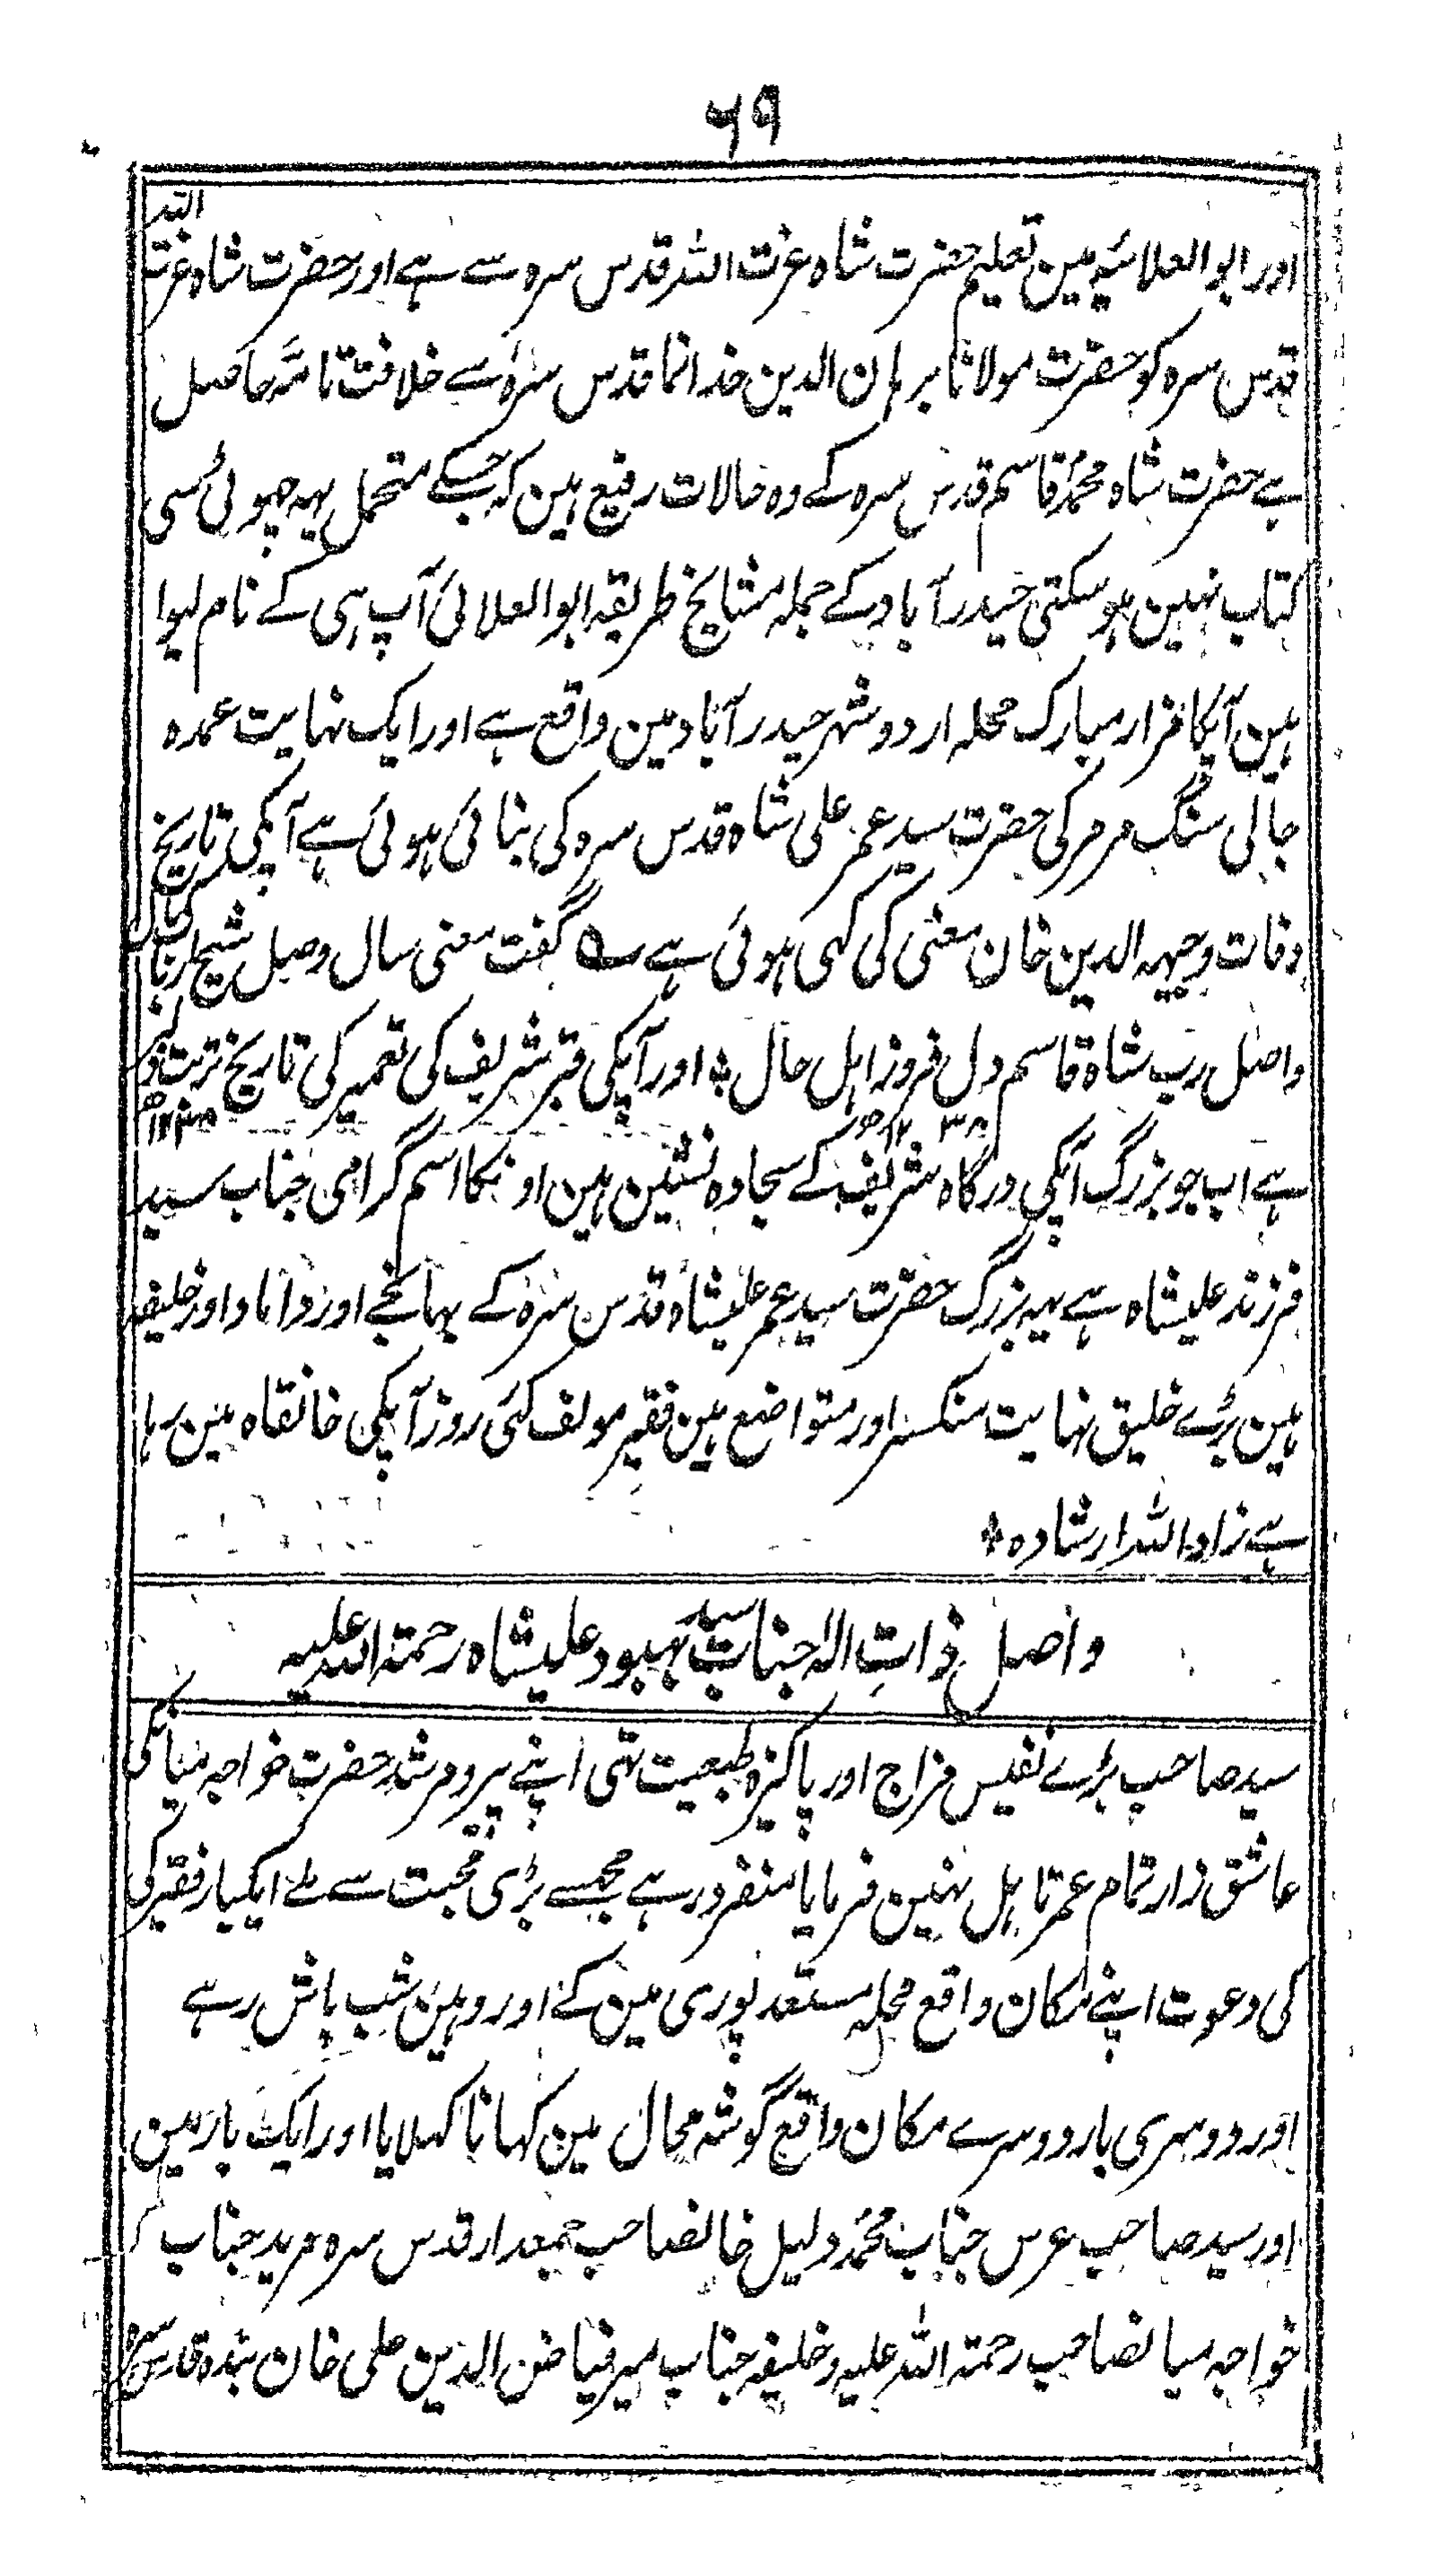 ۶۹
اور ابو العلائیہ مین تعلیم حضرت شاہ عزت اللہ قدس سرہ سے ہے اور حضرت شاہ عزت اللہ
قدس سرہ کو حضرت مولانا برہان الدین خدانما قدس سرہ سے خلافت تامہ حاصل
ہے حضرت شاہ محمد قاسم قدس سرہ کے وہ حالات رفیع ہین کہ جسکے متحمل یہہ چہوٹی سی
کتاب نہین ہو سکتی حیدرآباد کے جملہ مشایخ طریقہ ابو العلائی آپ ہی کے نام لیوا
ہین آپکا مزار مبارک محلہ اردو شہر حیدرآباد مین واقع ہے اور ایک نہایت عمدہ
جالی سنگ مرمر کی حضرت سید عمر علی شاہ قدس سرہ کی بنائی ہوئی ہے آپکی تاریخ
وفات وجیہہ الدین خان معنی کی کہی ہوئی ہے ؎ گفت معنی سال وصل شیخ
واصل رب شاہ قاسم دل فروز اہل حال ؞ اور آپکی قبر شریف کی تعمیر کی تاریخ تربت
ہے اب جو بزرگ آپکی درگاہ شریف کے سجادہ نشین ہین اونکا اسم گرامی جناب سید
فرزند علیشاہ ہے یہہ بزرگ حضرت سید عمر علیشاہ قدس سرہ کے بہانجے اور داماد اور خلیفہ
ہین بڑے خلیق نہایت منکسر اور متواضع ہین فقیر مولف کئی روز آپکی خانقاہ مین رہا
ہے زاد اللہ ارشادہ ؞
واصل ذاتِ الہ جناب سید بہبود علیشاہ رحمتہ اللہ علیہ
سید صاحب بڑے نفیس مزاج اور پاکیزہ طبعیت تہی اپنے پیر و مرشد حضرت خواجہ میانکی
عاشق زار تمام عمر تاہل نہین فرمایا منفرد رہے مجہسے بڑی محبت سے ملے ایکبار فقیر کی
کی دعوت اپنے مکان واقع محلہ مستعد پوری مین کئے اور وہین شب باش رہے
اور دوسری بار دوسرے مکان واقع گوشہ محال مین کہانا کہلایا اور ایک بار مین
اور سید صاحب عرس جناب محمد دلیل خانصاحب جمعدار قدس سرہ مرید جناب
خواجہ میانصاحب رحمتہ اللہ علیہ و خلیفہ جناب میر فیاض الدین علی خان بندہ قدس سرہ